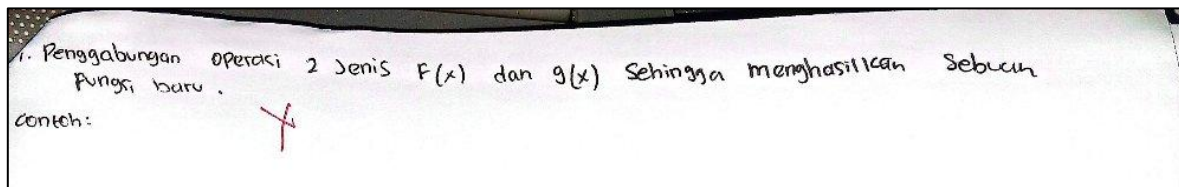 1. Penggabungan operasi 2 Jenis F(x) dan g(x) Sehingga menghasilkan Sebuah
Fungsi baru.
contoh: